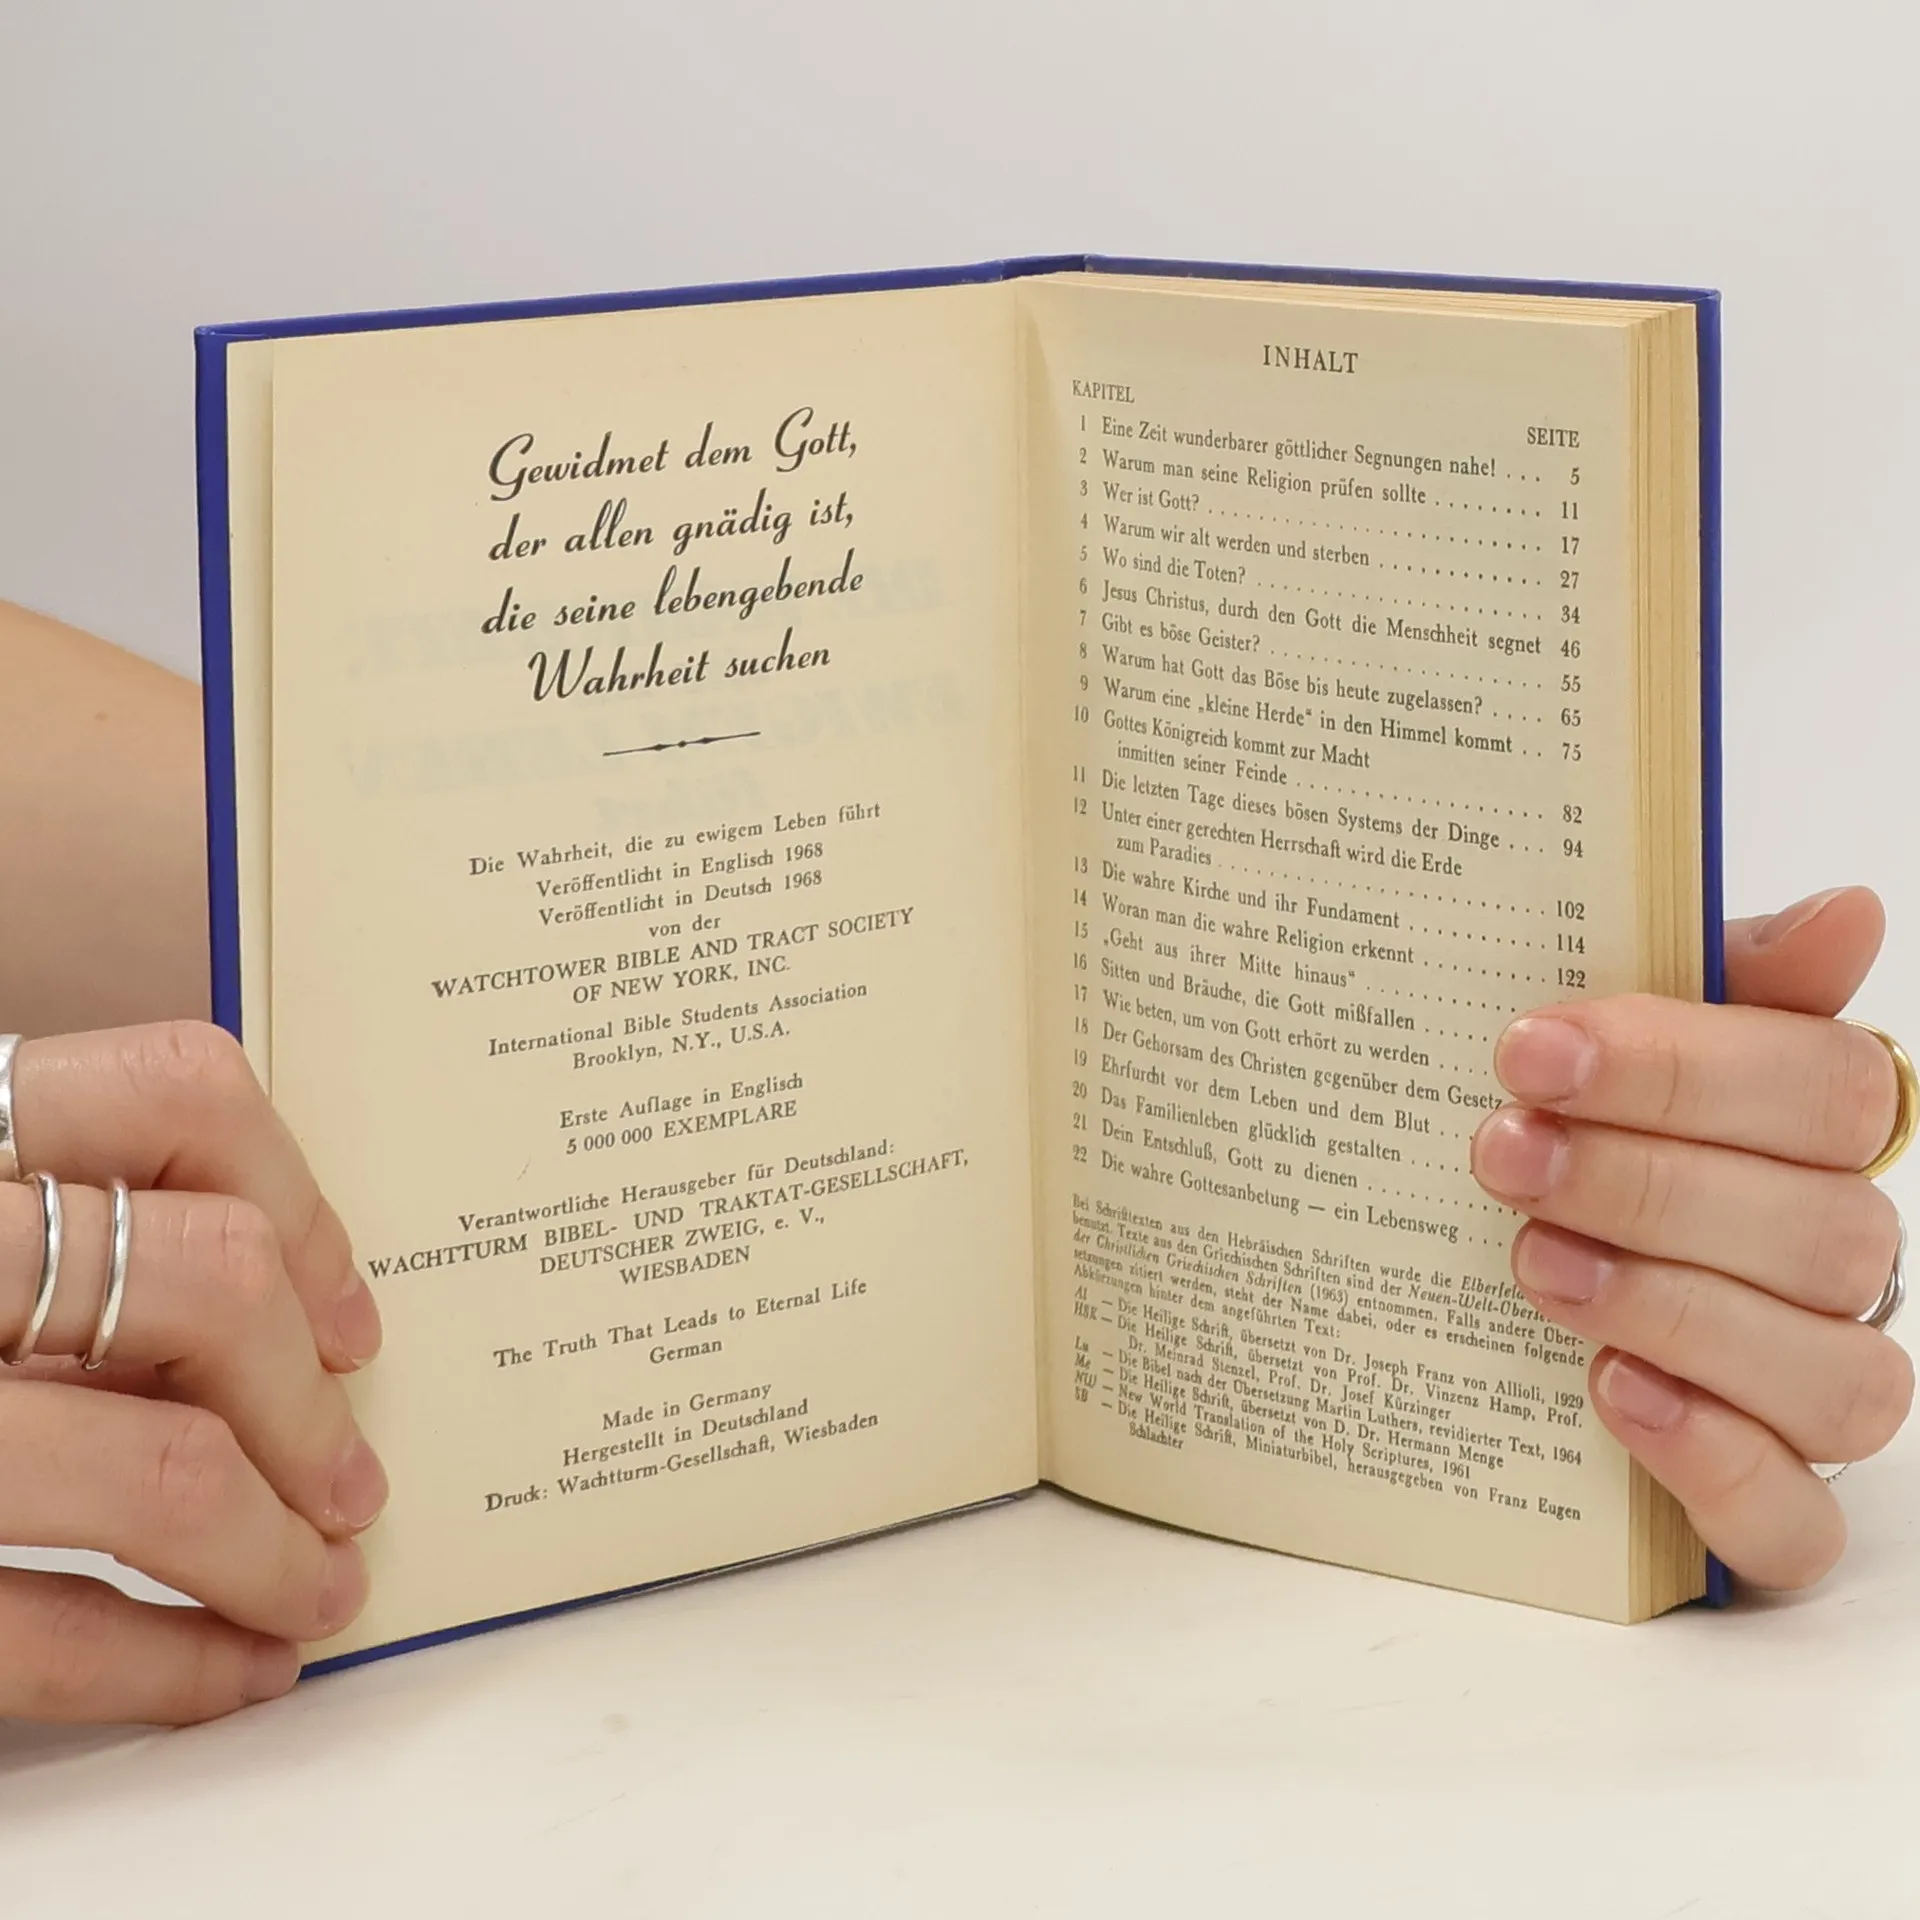 Gewidmet dem Gott,
der allen gnädig ist,
die seine lebengebende
Wahrheit suchen
Die Wahrheit, die zu ewigem Leben führt
Veröffentlicht in Englisch 1968
Veröffentlicht in Deutsch 1968
von der
WATCHTOWER BIBLE AND TRACT SOCIETY
OF NEW YORK, INC.
International Bible Students Association
Brooklyn, N.Y., U.S.A.
Erste Auflage in Englisch
5 000 000 EXEMPLARE
Verantwortliche Herausgeber für Deutschland:
WACHTTURM BIBEL- UND TRAKTAT-GESELLSCHAFT,
DEUTSCHER ZWEIG, e. V.,
WIESBADEN
The Truth That Leads to Eternal Life
German
Made in Germany
Hergestellt in Deutschland
Druck: Wachtturm-Gesellschaft, Wiesbaden
INHALT
KAPITEL SEITE
1 Eine Zeit wunderbarer göttlicher Segnungen nahe! . . . 5
2 Warum man seine Religion prüfen sollte . . . . . . . . 11
3 Wer ist Gott? . . . . . . . . . . . . . . . . . . . . . . . . . . 17
4 Warum wir alt werden und sterben . . . . . . . . . . . . . 27
5 Wo sind die Toten? . . . . . . . . . . . . . . . . . . . . . . 34
6 Jesus Christus, durch den Gott die Menschheit segnet 46
7 Gibt es böse Geister? . . . . . . . . . . . . . . . . . . . . . 55
8 Warum hat Gott das Böse bis heute zugelassen? . . . . 65
9 Warum eine „kleine Herde“ in den Himmel kommt . . 75
10 Gottes Königreich kommt zur Macht
inmitten seiner Feinde . . . . . . . . . . . . . . . . . . . 82
11 Die letzten Tage dieses bösen Systems der Dinge . . . 94
12 Unter einer gerechten Herrschaft wird die Erde
zum Paradies . . . . . . . . . . . . . . . . . . . . . . . . . 102
13 Die wahre Kirche und ihr Fundament . . . . . . . . . . . 114
14 Woran man die wahre Religion erkennt . . . . . . . . . 122
15 „Geht aus ihrer Mitte hinaus“ . . . . . . . . . . . .
16 Sitten und Bräuche, die Gott mißfallen . . . . .
17 Wie beten, um von Gott erhört zu werden . . . .
18 Der Gehorsam des Christen gegenüber dem Gesetz
19 Ehrfurcht vor dem Leben und dem Blut . . .
20 Das Familienleben glücklich gestalten . . . .
21 Dein Entschluß, Gott zu dienen . . . . . . . . . .
22 Die wahre Gottesanbetung — ein Lebensweg . . .
Bei Schrifttexten aus den Hebräischen Schriften wurde die
benutzt. Texte aus den Griechischen Schriften sind der
der Christlichen Griechischen Schriften (1963) entnommen. Falls andere Über-
setzungen zitiert werden, steht der Name dabei, oder es erscheinen folgende
Abkürzungen hinter dem angeführten Text:
Al — Die Heilige Schrift, übersetzt von Dr. Joseph Franz von Allioli, 1929
HSK — Die Heilige Schrift, übersetzt von Prof. Dr. Vinzenz Hamp, Prof.
Dr. Meinrad Stenzel, Prof. Dr. Josef Kürzinger
Lu — Die Bibel nach der Übersetzung Martin Luthers, revidierter Text, 1964
Me — Die Heilige Schrift, übersetzt von D. Dr. Hermann Menge
NW — New World Translation of the Holy Scriptures, 1961
SB — Die Heilige Schrift, Miniaturbibel, herausgegeben von Franz Eugen
Schlachter